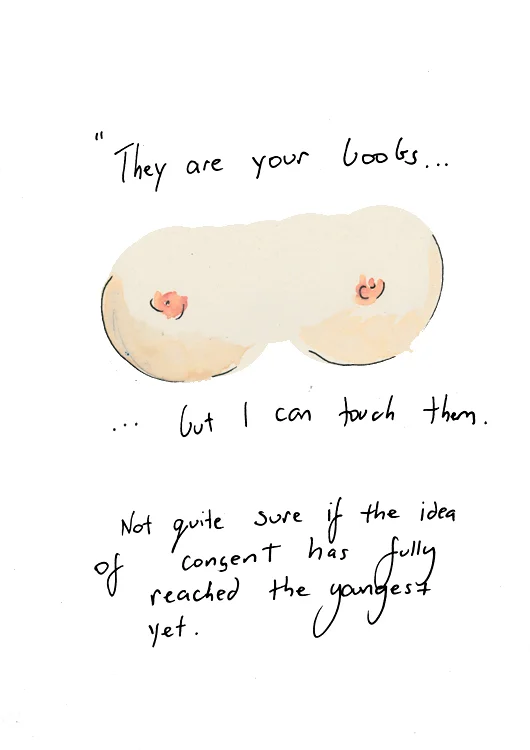 "They are your boobs...
... but I can touch them.
Not quite sure if the idea
of consent has fully
reached the youngest
yet.